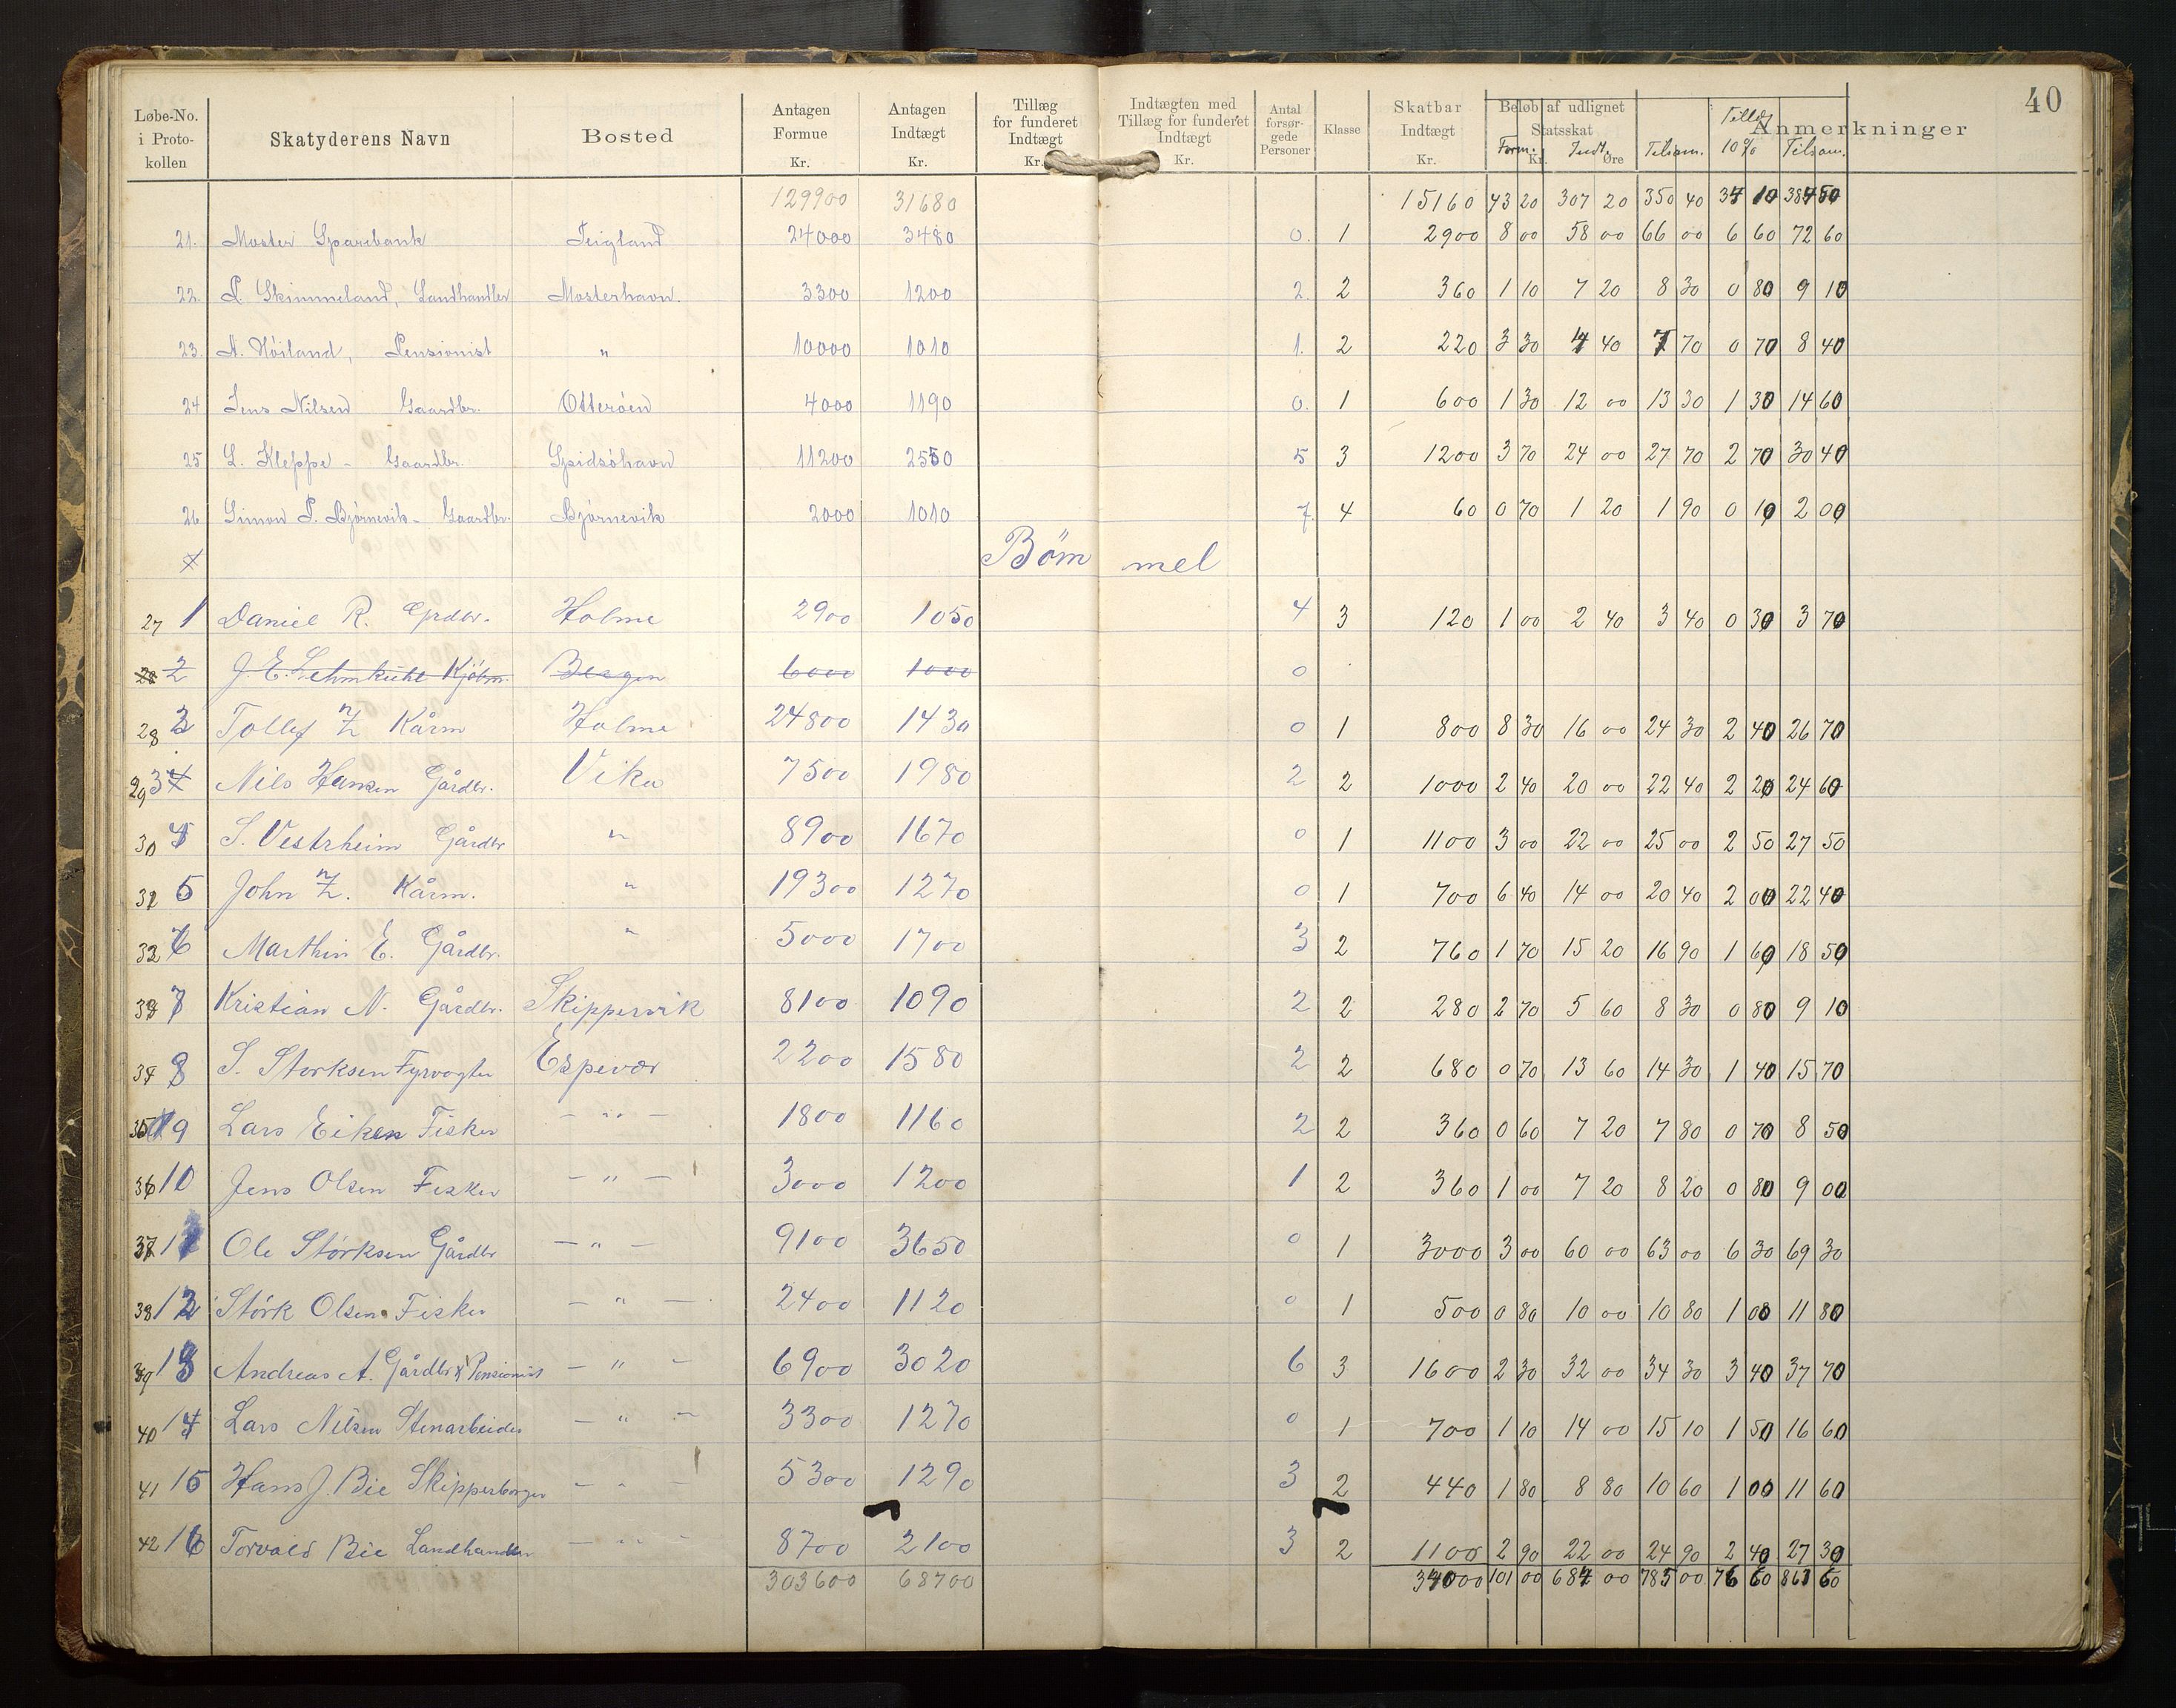 40
Løbe-No. i Proto-kollen Skatyderens Navn Bosted Antagen Formue Kr. Antagen Indtægt Kr. Tillæg for funderet Indtægt Kr. Indtægten med Tillæg for funderet Indtægt Kr. Antal forsør-gede Personer Klasse Skatbar Indtægt Kr. Beløb af udlignet Statsskat Kr. Øre Anmerkninger
Form. Indt. Tilsam. Tillæg 10% Tilsam.
129900 31680 15160 43 20 307 20 350 40 34 10 384 50
21. Moster Sparebank Teigland 24000 3480 0. 1 2900 8 00 58 00 66 00 6 60 72 60
22. P. Skimmeland, Landhandler Mosterhavn. 3300 1200 2. 2 360 1 10 7 20 8 30 0 80 9 10
23. A. Höiland, Pensionist " 10000 1010 1. 2 220 3 30 4 40 7 70 0 70 8 40
24 Jens Nilsen Gaardbr. Otteröen 4000 1190 0. 1 600 1 30 12 00 13 30 1 30 14 60
25 L. Kleppe - Gaardbr. Spidsöhavn 11200 2550 5 3 1200 3 70 24 00 27 70 2 70 30 40
26 Simon P. Björnevik - Gaardbr. Björnevik 2000 1010 7. 4 60 0 70 1 20 1 90 0 10 2 00
Bömmel
27 1 Daniel R. Grdbr. Holme 2900 1050 4 3 120 1 00 2 40 3 40 0 30 3 70
28 2 J. E. Lehmkuhl Kjöbm. Bergen 6000 1000 0
28 2 Tollef Z Kårm Holme 24800 1430 0 1 800 8 30 16 00 24 30 2 40 26 70
29 3 Nils Hansen Gårdbr. Vika 7500 1980 2 2 1000 2 40 20 00 22 40 2 20 24 60
30 4 S. Vestrheim Gårdbr " 8900 1670 0 1 1100 3 00 22 00 25 00 2 50 27 50
31 5 John Z. Kårm. " 19300 1270 0 1 700 6 40 14 00 20 40 2 00 22 40
32 6 Marthin E. Gårdbr. " 5000 1700 3 2 760 1 70 15 20 16 90 1 60 18 50
33 7 Kristian N. Gårdbr. Skippervik 8100 1090 2 2 280 2 70 5 60 8 30 0 80 9 10
34 8 S. Storksen Fyrvogter Espevær 2200 1580 2 2 680 0 70 13 60 14 30 1 40 15 70
35 9 Lars Eiken Fisker - " - 1800 1160 2 2 360 0 60 7 20 7 80 0 70 8 50
36 10 Jens Olsen Fisker - " - 3000 1200 1 2 360 1 00 7 20 8 20 0 80 9 00
37 11 Ole Störksen Gårdbr - " - 9100 3650 0 1 3000 3 00 60 00 63 00 6 30 69 30
38 12 Störk Olsen Fisker - " - 2400 1120 0 1 500 0 80 10 00 10 80 1 00 11 80
39 13 Andreas A. Gårdbr & Pensionist - " - 6900 3020 6 3 1600 2 30 32 00 34 30 3 40 37 70
40 14 Lars Nilsen Stenarbeider - " - 3300 1270 0 1 700 1 10 14 00 15 10 1 50 16 60
41 15 Hans J. Bie Skipperborger - " - 5300 1290 3 2 440 1 80 8 80 10 60 1 00 11 60
42 16 Torvald Bie Landhandler - " - 8700 2100 3 2 1100 2 90 22 00 24 90 2 40 27 30
303600 68700 34000 101 00 684 00 785 00 76 60 861 60